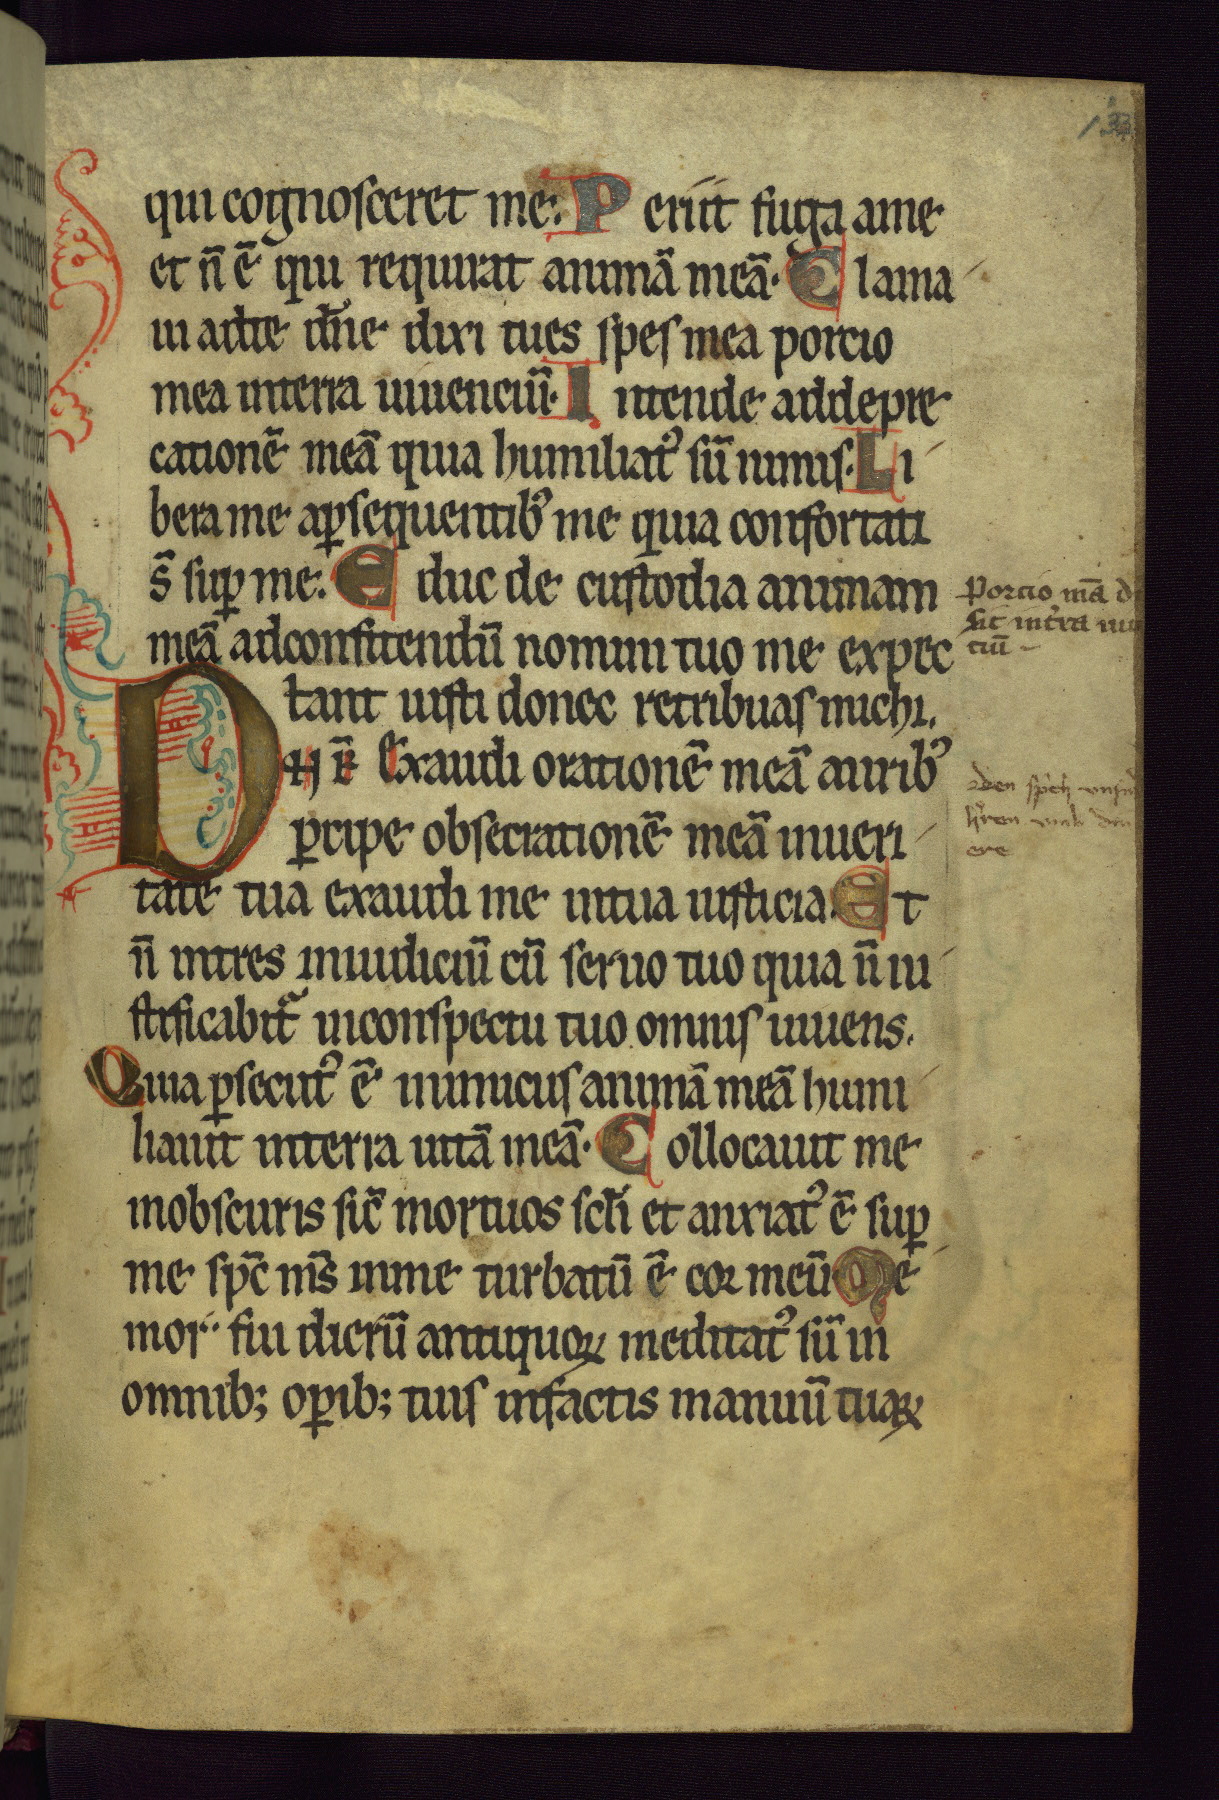 133
qui cognosceret me. Periit fuga ame
et n̄ ē qui requirat animā meā. Clama
ui adte dn̄e dixi tues spes mea porcio
mea interra uiuenciū. Intende addepre
cationē meā quia humiliatꝰ sū nimis. Li
bera me aꝑsequentibꝰ me quia confortati
s̄ suꝑ me. Educ de custodia animam
meā adconfitendū nomini tuo me expec
tant iusti donec retribuas michi.
Dn̄e Exaudi orationē meā auribꝰ
ꝑcipe obsecrationē meā inueri
tate tua exaudi me intua iusticia. Et
n̄ intres iniudiciū cū seruo tuo quia n̄ iu
stificabit᷑ inconspectu tuo omnis uiuens.
Quia ꝑsecutꝰ ē inimicus animā meā humi
liauit interra uitā meā. Collocauit me
inobscuris sic̄ mortuos scl̄i et anxiatꝰ ē suꝑ
me sp̄c m̄s inme turbatū ē cor meū Me
mor fui dierū antiquoꝝ meditatꝰ sū in
omnib; oꝑib; tuis infactis manuū tuaꝝ
Porcio mā
sit int̉ra
tiū